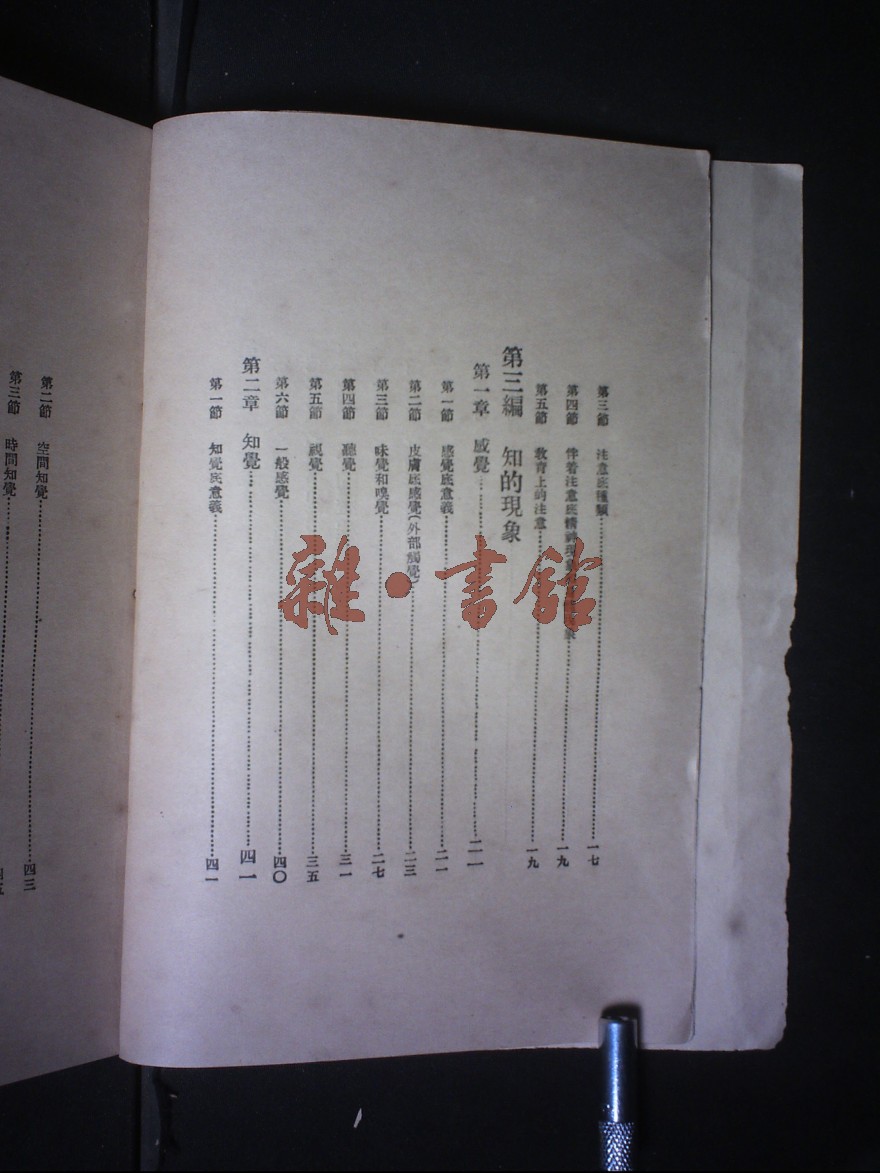 第三節 注意底種類 一七
第四節 伴着注意底精神現象 一九
第五節 教育上的注意 一九
第三編 知的現象
第一章 感覺 二一
第一節 感覺底意義 二一
第二節 皮膚底感覺(外部觸覺) 二三
第三節 味覺和嗅覺 二七
第四節 聽覺 三一
第五節 視覺 三五
第六節 一般感覺 四〇
第二章 知覺 四一
第一節 知覺底意義 四一
第二節 空間知覺 四三
第三節 時間知覺
雜·書館